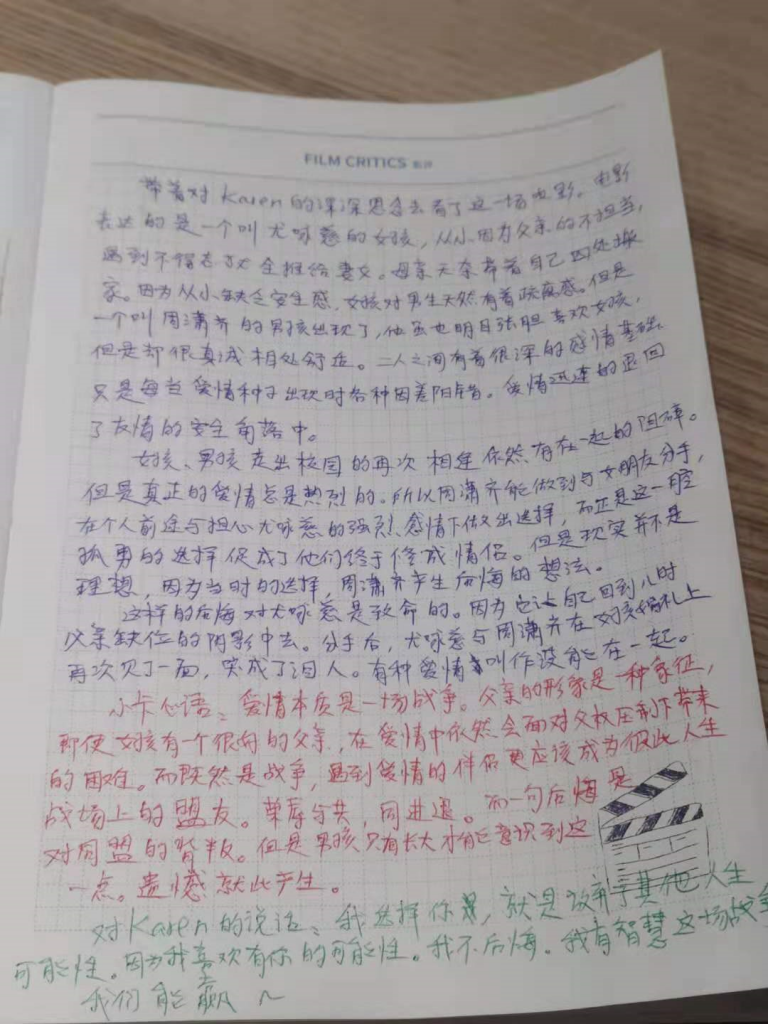 FILM CRITICS 影评
带着对Karen的深深思念去看了这一场电影。电影
表达的是一个叫尤咏慈的女孩，从小因为父亲的不担当，
遇到不得志了就全推给妻女。母亲无奈带着自己四处搬
家。因为从小缺乏安全感，女孩对男生天然有着疏离感。但是
一个叫周潇齐的男孩出现了，他虽也明目张胆喜欢女孩，
但是却很真诚相处舒适。二人之间有着很深的感情基础
只是每当爱情种子出现时各种因差阳错。爱情迅速的退回
了友情的安全角落中。
女孩、男孩走出校园的再次相逢依然有在一起的阻碍。
但是真正的爱情总是热烈的。所以周潇齐能做到与女朋友分手，
在个人前途与担心尤咏慈的强烈感情下做出选择，而正是这一腔
孤勇的选择促成了他们终于修成情侣。但是现实并不是
理想，因为当时的选择，周潇齐产生后悔的想法。
这样的后悔对尤咏慈是致命的。因为它让自己回到儿时
父亲缺位的阴影中去。分手后，尤咏慈与周潇齐在女孩婚礼上
再次见了一面，哭成了泪人。有种爱情叫作没能在一起。
小卡心语：爱情本质是一场战争。父亲的形象是一种象征，
即使女孩有一个很好的父亲，在爱情中依然会面对父权压制下带来
的困难。而既然是战争，遇到爱情的伴侣更应该成为彼此人生
战场上的盟友。荣辱与共，同进退。而一句后悔是
对同盟的背叛。但是男孩只有长大才能意识到这
一点。遗憾就此产生。
对Karen的说话：我选择你，就是放弃了其他人生
可能性。因为我喜欢有你的可能性。我不后悔。我有智慧这场战争
我们能赢～